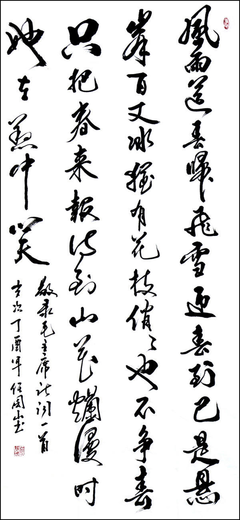 風雨送春歸飛雪迎春到已是懸
崖百丈冰猶有花枝俏〻也不争春
只把春来報待到山花爛漫时
她在叢中笑
敬录毛主席诗词一首
岁次丁酉年